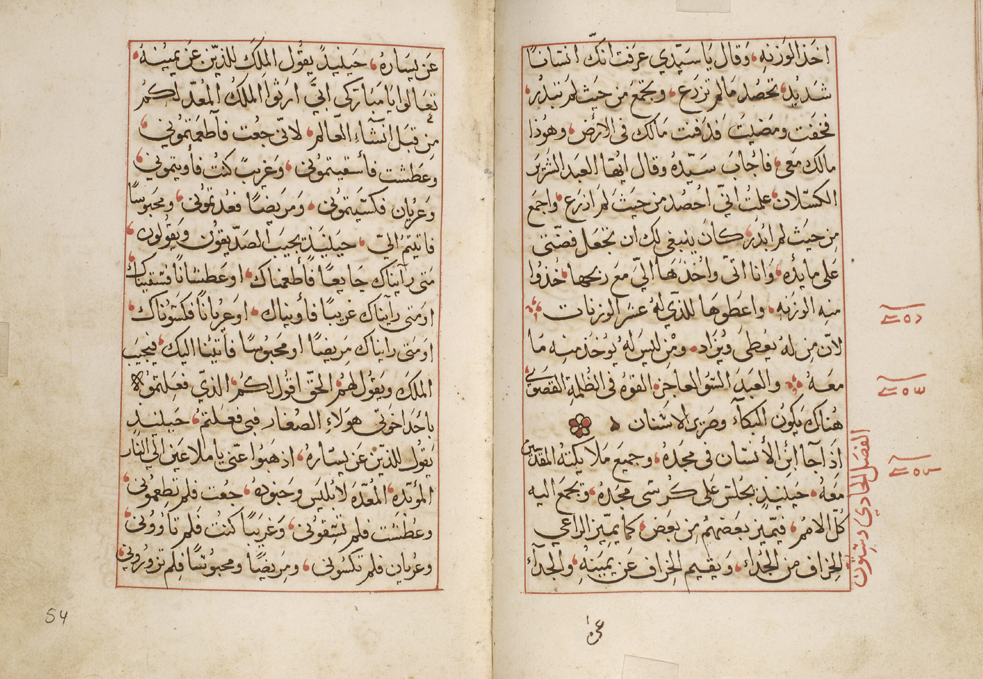 اخذ الوزنه وقال يا سيدي عرفت انك انسانا
شديد تحصد ما لم تزرع وتجمع من حيث لم تبذر
فخفت ومضيت فدفنت مالك في الارض وهوذا
مالك معي فاجاب سيده وقال ايها العبد الشرير
الكسلان علمت اني احصد من حيث لم ازرع واجمع
من حيث لم ابذر كان ينبغي لك ان تجعل فضتي
على مايده وانا اتي واخذها الي مع ربحها خذوا
منه الوزنه واعطوها للذي له عشر الوزنات
لان من له يعطى ويزاد ومن ليس له يوخذ منه ما
معه والعبد السو العاجز القوه في الظلمه القصوى
هناك يكون البكآء وصرير الاسنان
اذا جا ابن الانسان في مجده وجميع ملايكته المقدسين
معه حينيذ يجلس على كرسي مجده وتجمع اليه
كل الامم فيميز بعضهم من بعض كما يميز الراعي
الخراف من الجدآء ويقيم الخراف عن يمينه والجدآء
الفصل الحادي وستون
عن يساره حينيذ يقول الملك للذين عن يمينه
تعالوا يا مباركي ابي ارثوا الملك المعد لكم
من قبل انشآء العالم لاني جعت فاطعمتموني
وعطشت فاسقيتموني وغريبا كنت فاويتموني
وعريان فكسيتموني ومريضا فعدتموني ومحبوسا
فاتيتم الي حينيذ يجيب الصديقون ويقولون
متى رايناك جايعا فاطعمناك او عطشانا فسقيناك
او متى رايناك غريبا فاويناك او عريانا فكسوناك
او متى رايناك مريضا او محبوسا فاتينا اليك فيجيب
الملك ويقول لهم الحق اقول لكم الذي فعلتموه
باحد اخوتي هولاء الصغار فبي فعلتم حينيذ
يقول للذين عن يساره اذهبوا عني يا ملاعين الي النار
الموبده المعده لابليس وجنوده جعت فلم تطعموني
وعطشت فلم تسقوني وغريبا كنت فلم تاووني
وعريان فلم تكسوني ومريضا ومحبوسا فلم تزوروني
54